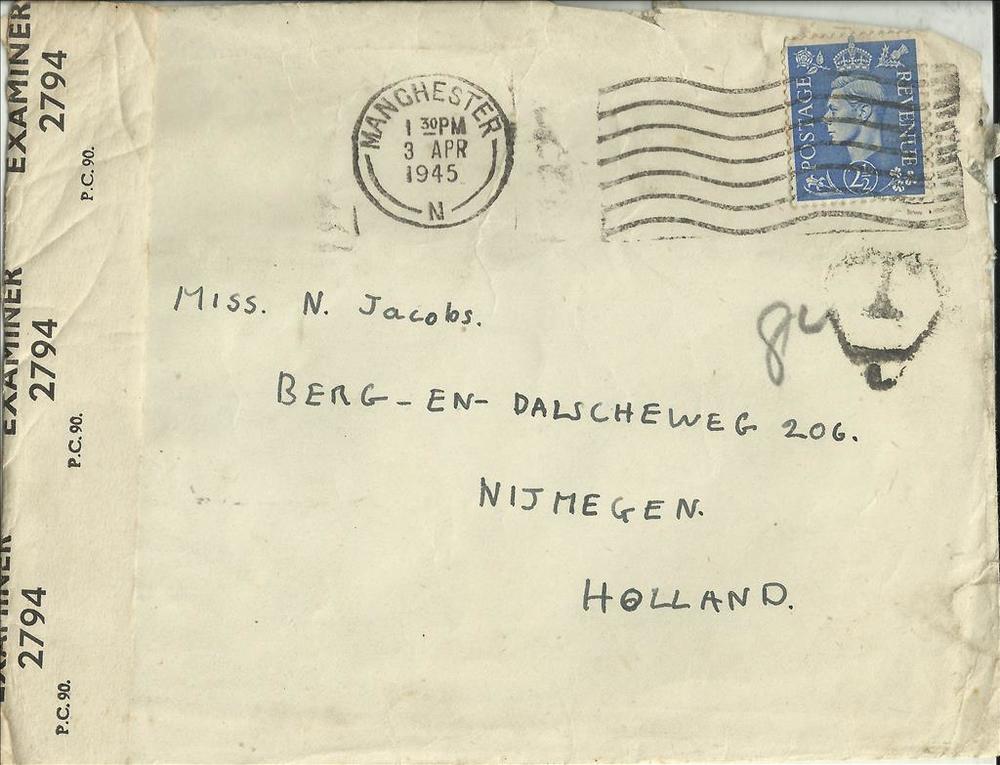 EXAMINER 2794
P.C. 90.
EXAMINER 2794
P.C. 90.
EXAMINER 2794
P.C. 90.
MANCHESTER
1 30PM
3 APR
1945
N
POSTAGE REVENUE
2½
T
Miss. N. Jacobs.
BERG-EN-DALSCHEWEG 206.
NIJMEGEN.
HOLLAND.